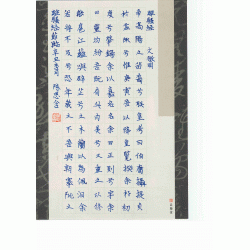 離騷經
帝高陽之苗裔兮朕皇考曰伯庸攝提貞
于孟陬兮惟庚寅吾以降皇覽揆余初
度兮肇錫余以嘉名名余曰正則兮字余
曰靈均紛吾既有此內美兮又重之以脩
能扈江離與辟芷兮紉秋蘭以為佩汩余
若將不及兮恐年歲之不吾與朝搴阰之
離騷經節臨辛丑